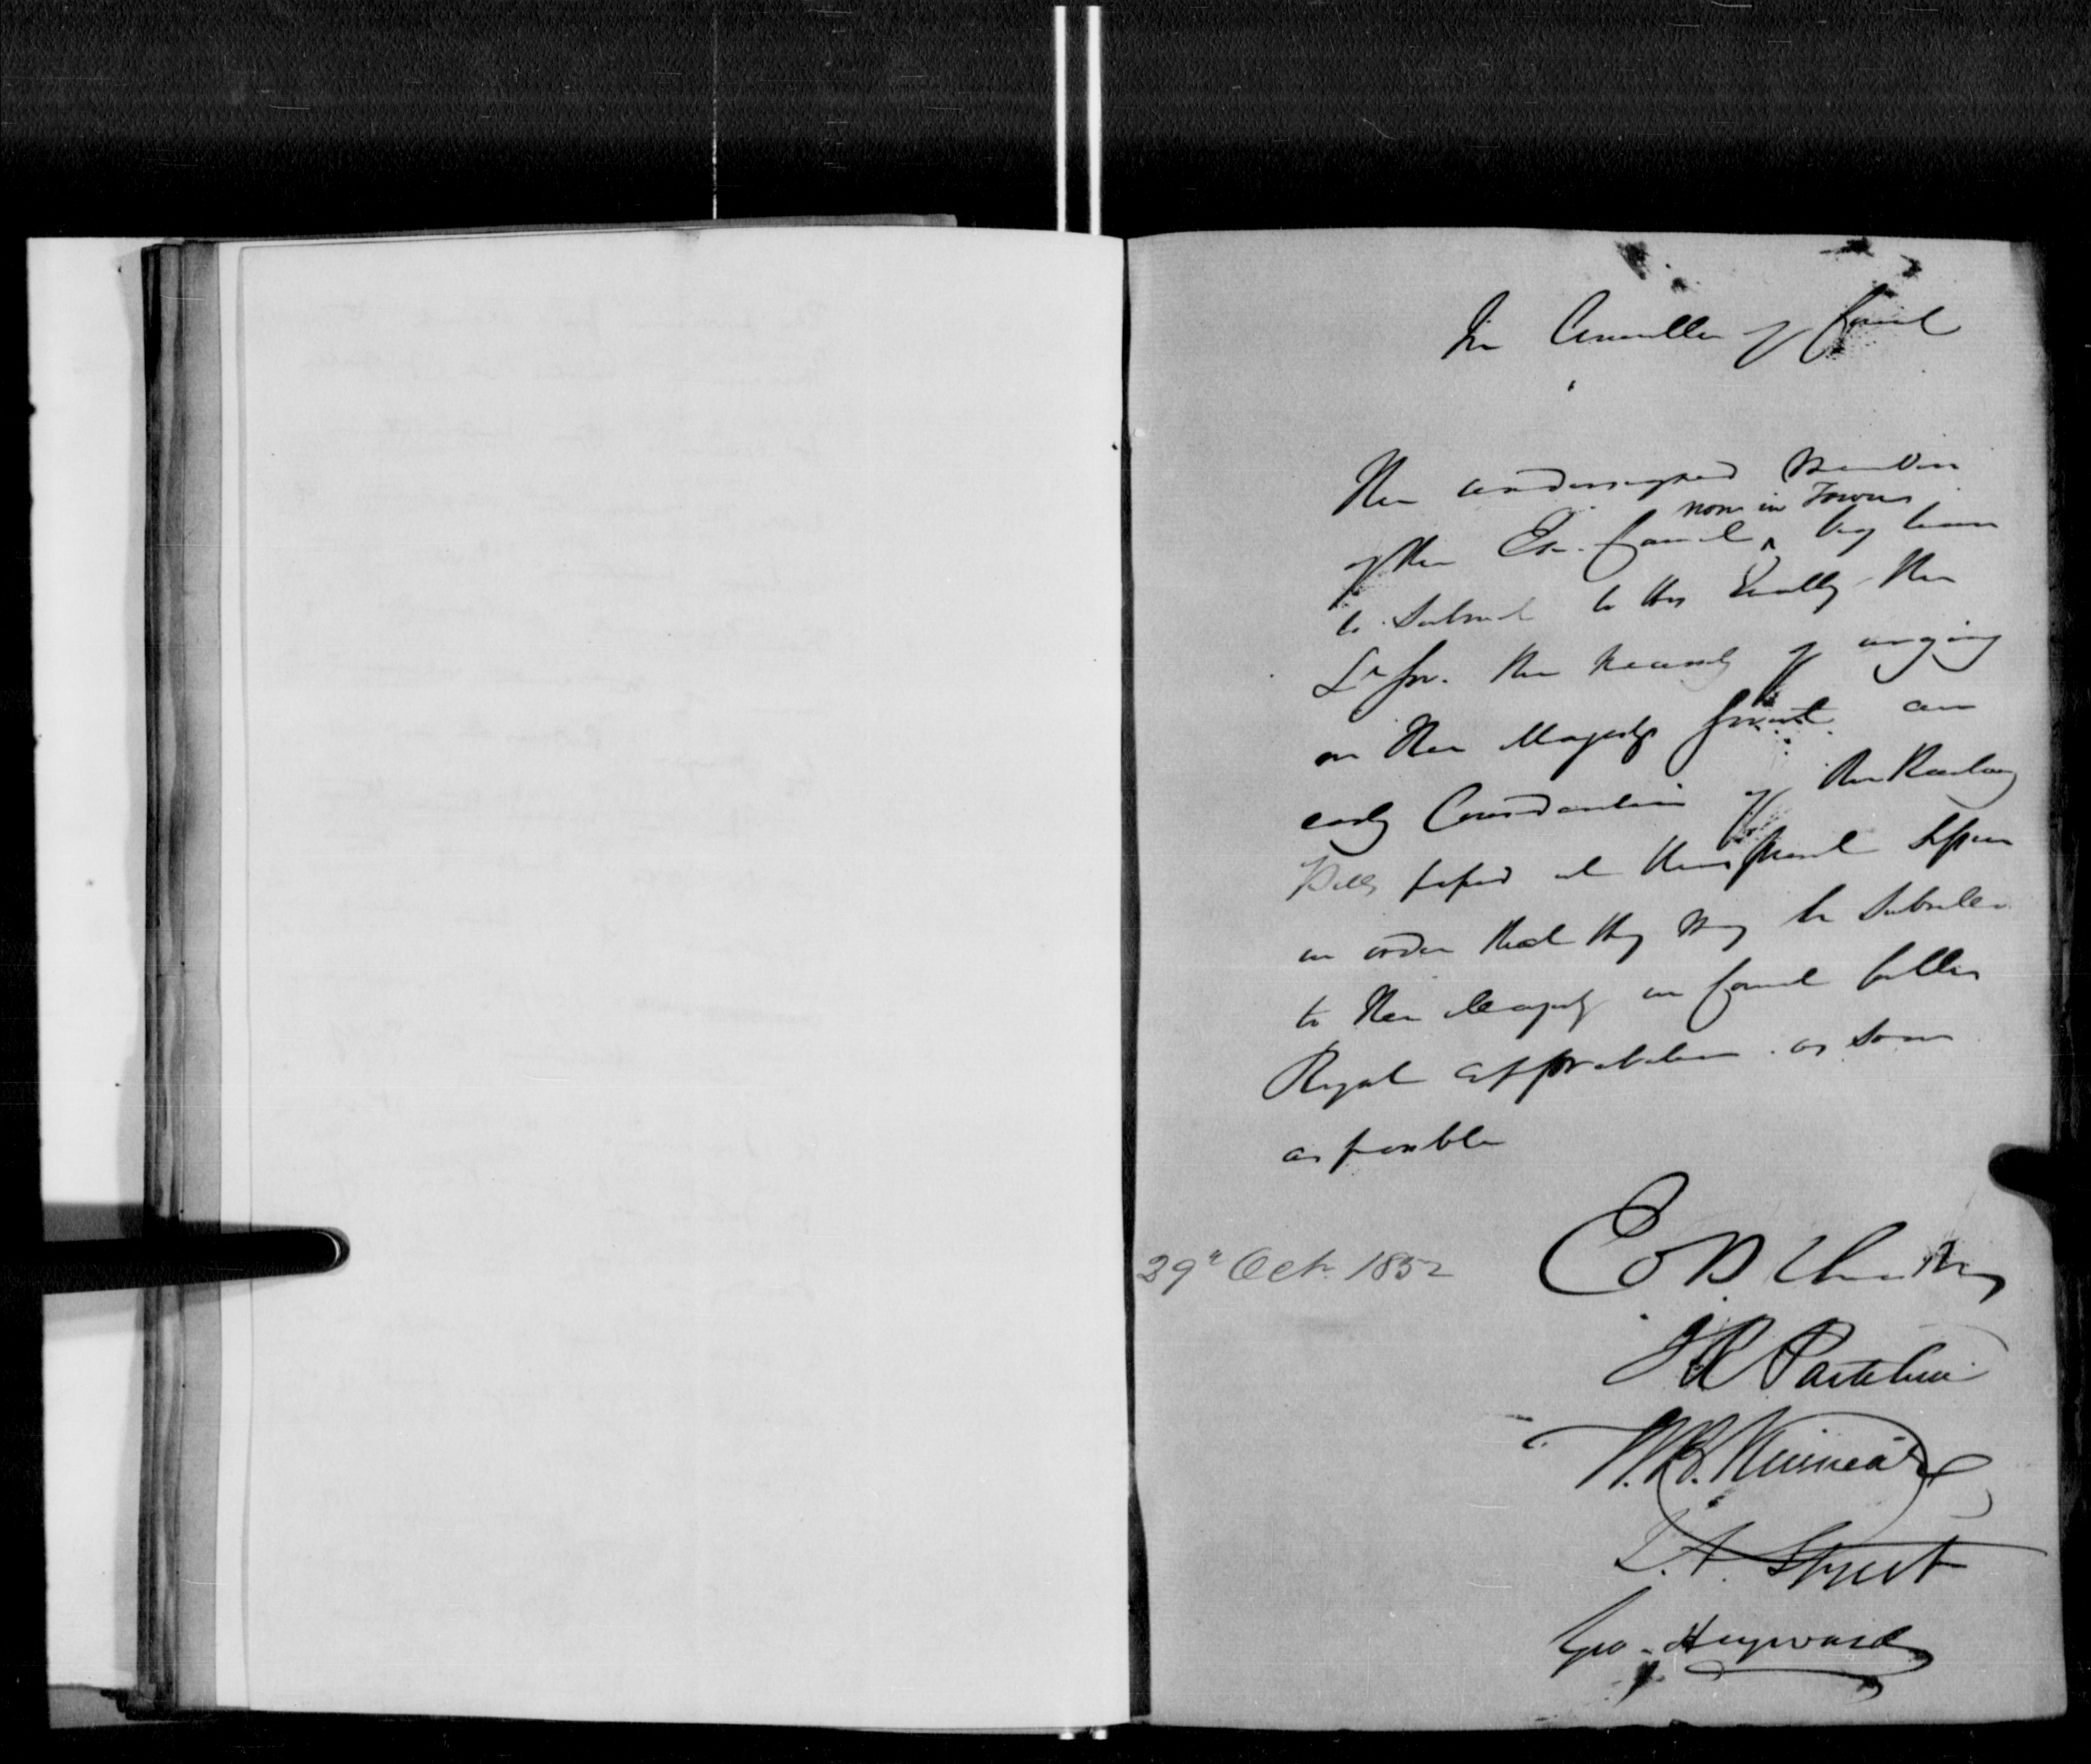 In Committee of Council
The undersigned Members
now in Town
of the Ex. Council ^ beg leave
to Submit to His Excelly the
Lt Gov. the necessity of urging
on Her Majestys Govmt. an
early Consideration of the Railway
Bills passed at the present Session
in order that they may be Submitted
to Her Majesty in Council for Her
Royal approbation as soon
as possible
29th Oct. 1852
E B Chandler
J R Partelow
W. B. Kinnear
J. A. Street
Geo. Hayward